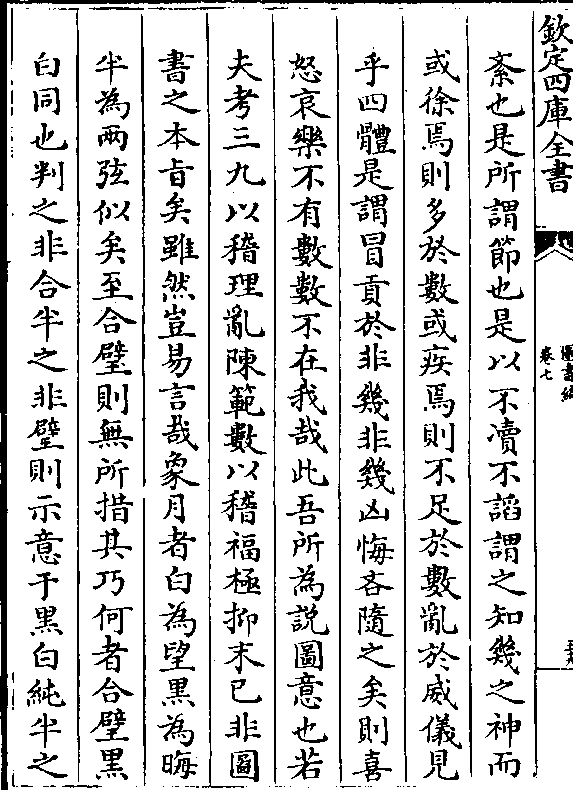 欽定四庫全書
圖書編
卷七
紊也是所謂節也是以不凟不謟謂之知幾之神而
或徐焉則多於數或疾焉則不足於數亂於威儀見
乎四體是謂冒貢於非幾非幾凶悔吝隨之矣則喜
怒哀樂不有數數不在我哉此吾所為説圖意也若
夫考三九以稽理亂陳範數以稽福極抑末已非圖
書之本旨矣雖然豈易言哉象月者白為望黒為晦
半為兩弦似矣至合璧則無所措其巧何者合璧黒
白同也判之非合半之非璧則示意于黒白純半之